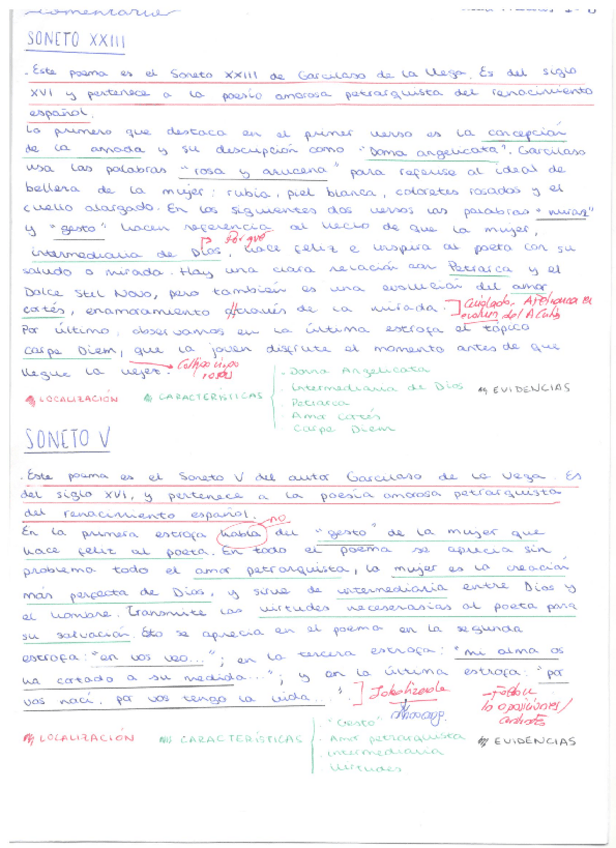 comentario
SONETO XXIII
. Este poema es el Soneto XXIII de Garcilaso de la Vega. Es del siglo
XVI y pertenece a la poesía amorosa petrarquista del renacimiento
español.
Lo primero que destaca en el primer verso es la concepción
de la amada y su descripción como "Donna angelicata". Garcilaso
usa las palabras "rosa y azucena" para referise al ideal de
belleza de la mujer: rubia, piel blanca, coloretes rosados y el
cuello alargado. En los siguientes dos versos las palabras "mirar"
y "gesto" hacen referencia al hecho de que la mujer,
Por qué
intermediaria de Dios, hace feliz e inspira al poeta con su
saludo o mirada. Hay una clara relación con Petrarca y el
Dolce Stil Novo, pero también es una evolución del amor
cortés, enamoramiento através de la mirada.
Cuidado,
del A Cortés
Por último, observamos en la última estrofa el tópico
Carpe Diem, que la joven disfrute el momento antes de que
llegue la vejez.
rosas
LOCALIZACIÓN CARACTERÍSTICAS
. Donna Angelicata
. Intermediaria de Dios
. Petrarca
. Amor Cortés
. Carpe Diem
EVIDENCIAS
SONETO V
. Este poema es el Soneto V del autor Garcilaso de la Vega. Es
del siglo XVI, y pertenece a la poesía amorosa petrarquista
del renacimiento español.
no
En la primera estrofa habla del "gesto" de la mujer que
hace feliz al poeta. En todo el poema se aprecia sin
problema todo el amor petrarquista, la mujer es la creación
más perfecta de Dios, y sirve de intermediaria entre Dios y
el hombre. Transmite las virtudes necesarias al poeta para
su salvación. Esto se aprecia en el poema en la segunda
estrofa: "en vos veo..."; en la tercera estrofa: "mi alma os
ha cortado a su medida..."; y en la última estrofa: "por
vos nací, por vos tengo la vida...".
LOCALIZACIÓN CARACTERÍSTICAS
. "Gesto"
. Amor petrarquista
. intermediaria
. Virtudes
EVIDENCIAS